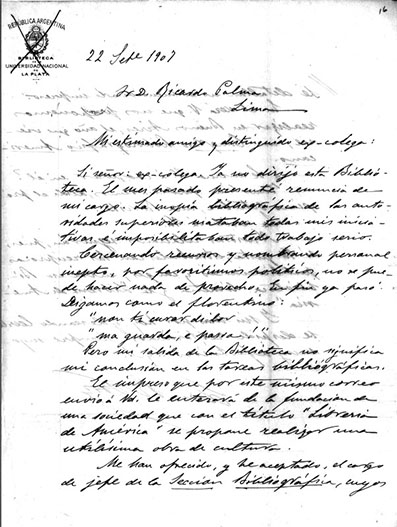 16
REPÚBLICA ARGENTINA
BIBLIOTECA
UNIVERSIDAD NACIONAL
DE
LA PLATA
22 Sepe 1907
Sr D. Ricardo Palma
Lima
Mi estimado amigo y distinguido ex-colega:
Si señor: ex-colega. Ya no dirijo esta Biblio-
teca. El mes pasado presenté renuncia de
mi cargo. La inopia bibliográfica de las auto-
ridades superiores mataban todas mis inicia-
tivas é imposibilitaban todo trabajo serio.
Cercenando recursos y nombrando personal
inepto, por favoritismos políticos, no se pue-
de hacer nada de provecho. En fin ya pasó.
Digamos como el florentino:
"non ti curar di lor
"ma guarda, e passa!"
Pero mi salida de la Biblioteca no significa
mi conclusión en las tareas bibliográficas.
El impreso que por este mismo correo
envío á Vd. le enterará de la fundación de
una sociedad que con el título "Librería
de América" se propone realizar una
utilísima obra de cultura.
Me han ofrecido, y he aceptado, el cargo
de jefe de la Sección Bibliográfica, cuyos